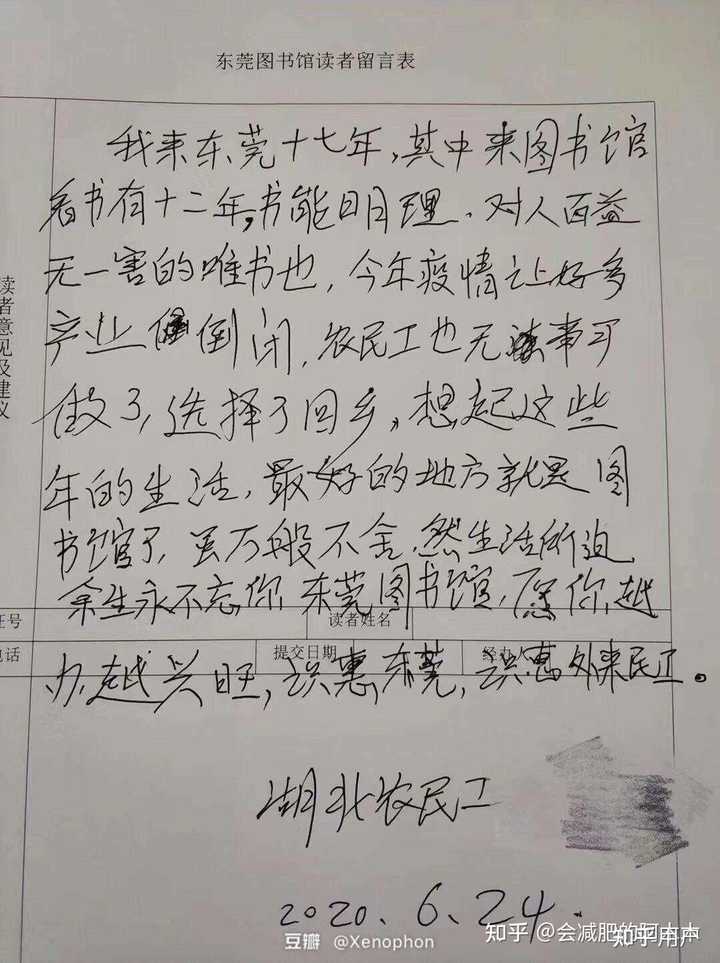 东莞图书馆读者留言表
我来东莞十七年,其中来图书馆
看书有十二年,书能明理、对人百益
无一害的唯书也,今年疫情让好多
产业倒闭,农民工也无事可
做了,选择了回乡,想起这些
年的生活,最好的地方就是图
书馆了,虽万般不舍,然生活所迫,
余生永不忘你,东莞图书馆,愿你越
办越兴旺,识惠东莞,识惠外来民工。
读者意见及建议
证号
读者姓名
电话
提交日期
经办人
湖北农民工
2020、6、24.
豆瓣 @Xenophon
知乎 @会减肥的阿木木
知乎用户